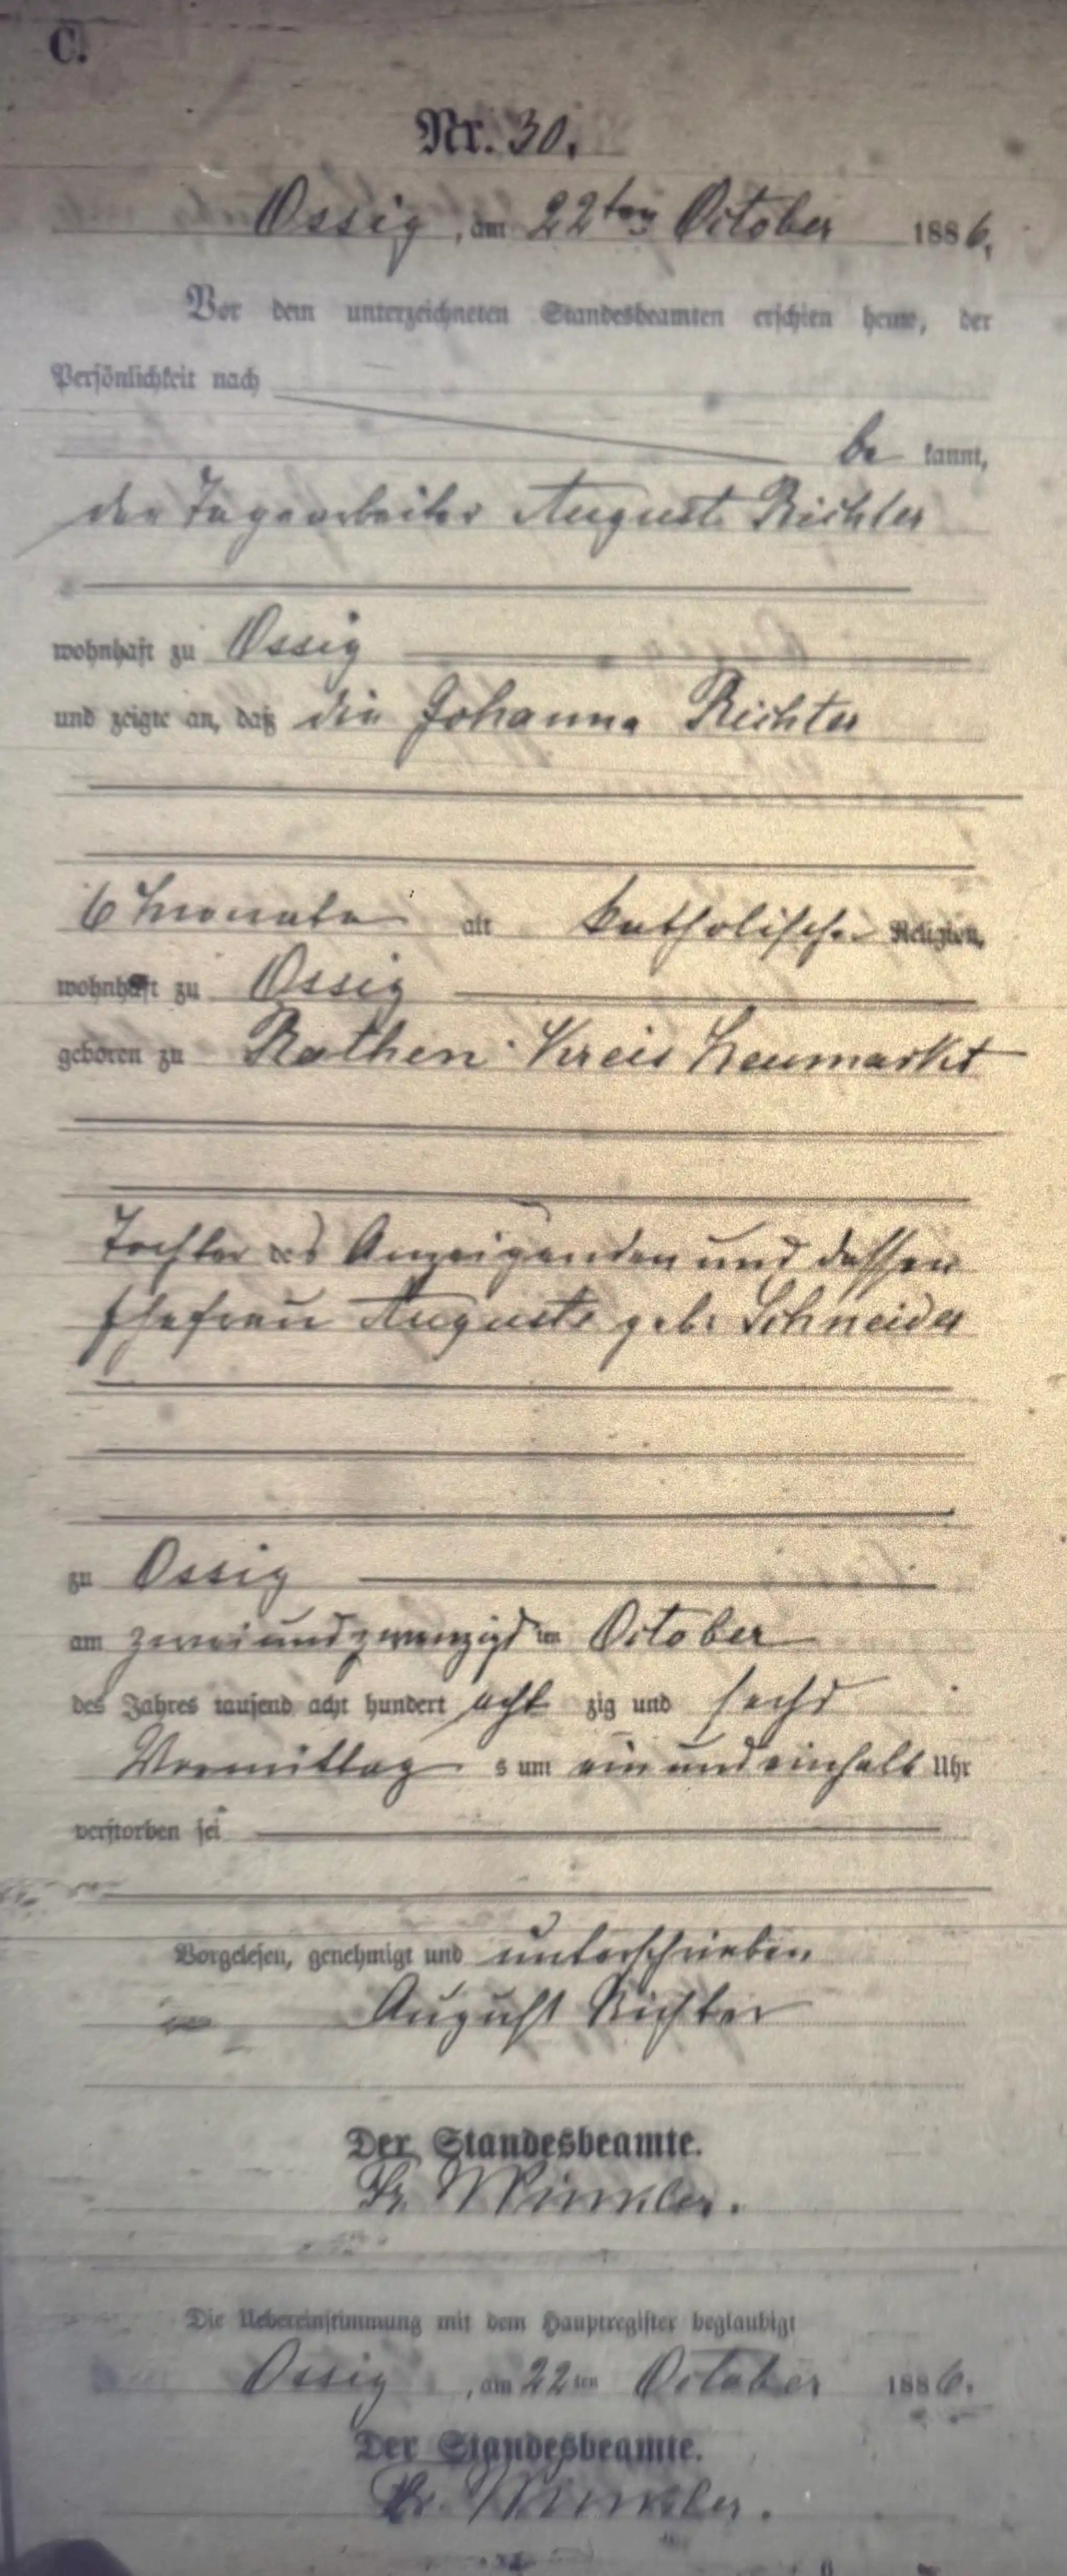 C.
Nr. 30.
Ossig, am 22ten October 1886.
Vor dem unterzeichneten Standesbeamten erschien heute, der
Persönlichkeit nach
be kannt,
der Tagearbeiter August Richter
wohnhaft zu Ossig
und zeigte an, daß die Johanna Richter
6 Monate alt katholischer Religion,
wohnhaft zu Ossig
geboren zu Rathen Kreis Neumarkt
Tochter des Anzeigenden und dessen
Ehefrau Auguste geb. Schneider
zu Ossig
am zweiundzwanzigsten October
des Jahres tausend acht hundert acht zig und sechs
Vormittag s um ein und einhalb Uhr
verstorben sei
Vorgelesen, genehmigt und unterschrieben
August Richter
Der Standesbeamte.
Fr. Winkler.
Die Uebereinstimmung mit dem Hauptregister beglaubigt
Ossig, am 22ten October 1886.
Der Standesbeamte.
Fr. Winkler.